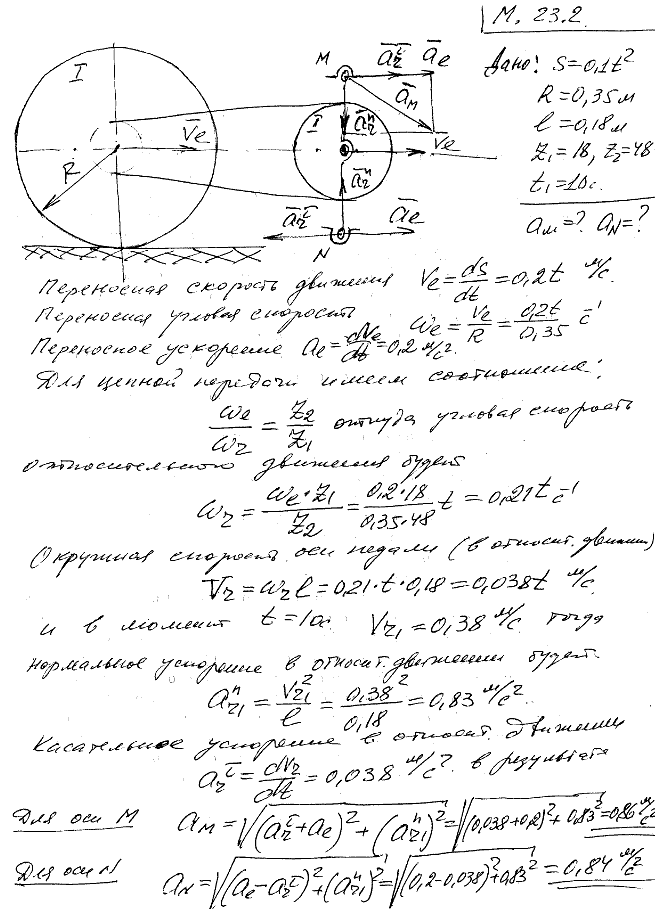 М. 23.2
Дано: S=0,1t²
R=0,35м
l=0,18м
Z₁=18, Z₂=48
t₁=10с.
aм=? aN=?
I
R
V̄e
M
āᵣᵗ
āe
āм
II
āᵣⁿ
Ve
āᵣⁿ
āᵣᵗ
āe
N
Переносная скорость движения Ve = dS/dt = 0,2t м/с
Переносная угловая скорость ωe = Ve/R = 0,2t/0,35 с⁻¹
Переносное ускорение ae = dVe/dt = 0,2 м/с².
Для цепной передачи имеем соотношение:
ωe/ωr = Z₂/Z₁ откуда угловая скорость
относительного движения будет
ωr = ωe·Z₁/Z₂ = 0,2·18/0,35·48 t = 0,21t с⁻¹
Окружная скорость оси педали (в относит. движении)
Vr = ωr l = 0,21·t·0,18 = 0,038t м/с
и в момент t=10с Vr₁ = 0,38 м/с. тогда
нормальное ускорение в относит. движении будет
aⁿr₁ = V²r₁/l = 0,38²/0,18 = 0,83 м/с²
Касательное ускорение в относит. движении
aᵗr = dVr/dt = 0,038 м/с². в результате
Для оси M aM = √(aᵗr+ae)²+(aⁿr₁)² = √(0,038+0,2)²+0,83² = 0,86 м/с²
Для оси N aN = √(ae−aᵗr)²+(aⁿr₁)² = √(0,2−0,038)²+0,83² = 0,84 м/с²